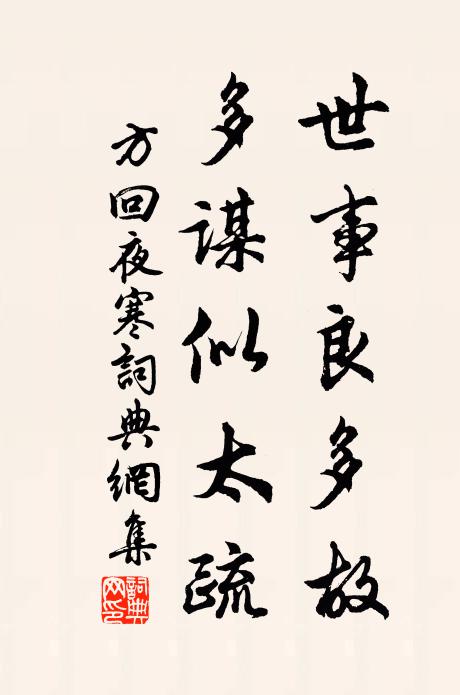 世事良多故
多謀似太疏
方回夜寒詞典網集
詞典网印